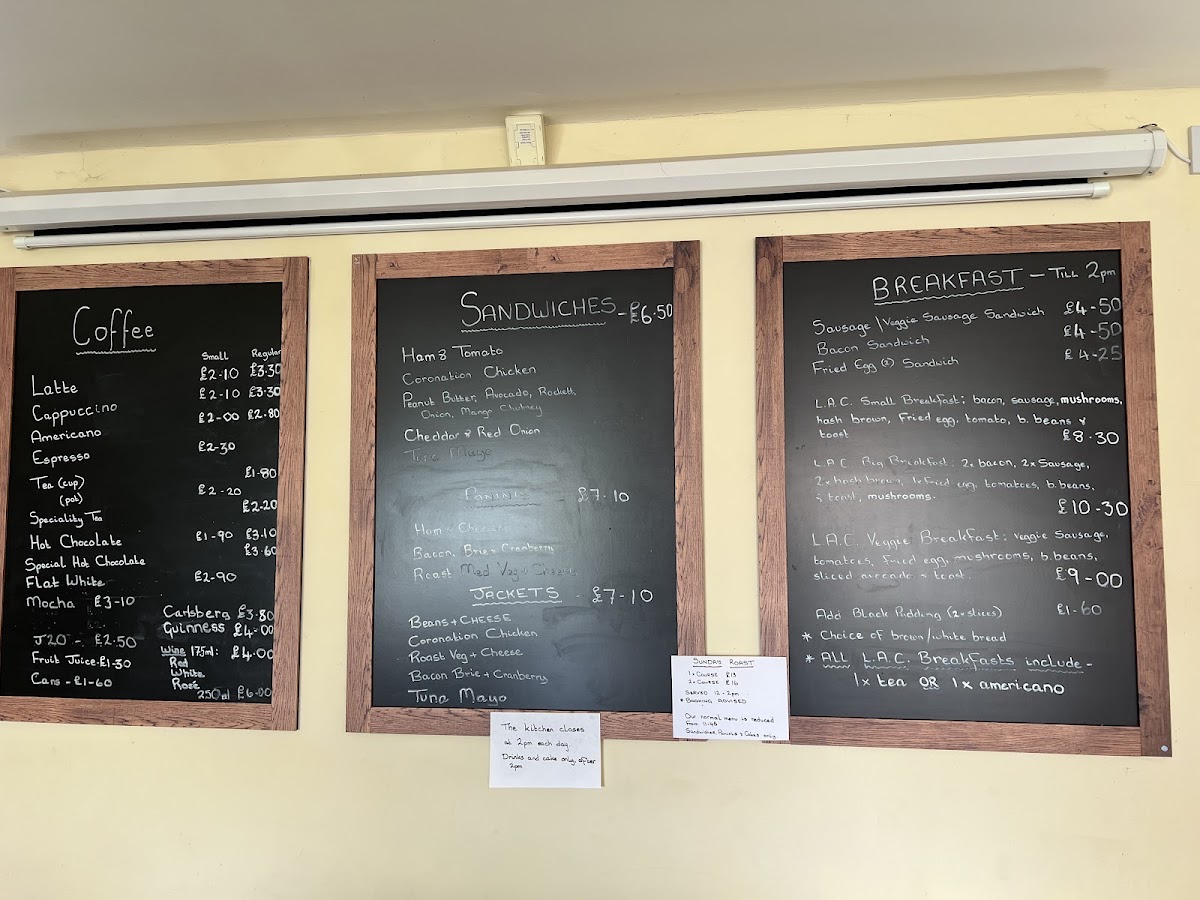 Coffee
Small Regular
Latte £2-10 £3-30
Cappuccino £2-10 £3-30
Americano £2-00 £2-80
Espresso £2-30
Tea (cup) £1-80
(pot) £2-20
Speciality Tea £2-20
Hot Chocolate £1-90 £3-10
Special Hot Chocolate £3-60
Flat White £2-90
Mocha £3-10
J20 - £2.50
Fruit Juice - £1-30
Cans - £1-60
Carlsberg £3.80
Guinness £4-00
Wine 175ml: £4-00
Red
White
Rosé
250ml £6-00
SANDWICHES - £6.50
Ham & Tomato
Coronation Chicken
Peanut Butter, Avocado, Rockett,
Onion, Mango Chutney
Cheddar & Red Onion
Tuna Mayo
PANINIS - £7-10
Ham & Cheese
Bacon, Brie & Cranberry
Roast Med Veg & Cheese
JACKETS - £7-10
BEANS + CHEESE
Coronation Chicken
Roast Veg + Cheese
Bacon Brie + Cranberry
Tuna Mayo
The kitchen closes
at 2pm each day.
Drinks and cake only after
2pm
SUNDAY ROAST
1 x COURSE £13
2 x COURSE £16
SERVED 12 - 2pm
* BOOKING ADVISED
Our normal menu is reduced
from 11.45
Sandwiches, Paninis & Cakes only
BREAKFAST - TILL 2pm
Sausage / Veggie Sausage Sandwich £4-50
Bacon Sandwich £4-50
Fried Egg (2) Sandwich £4-25
L.A.C. Small Breakfast; bacon, sausage, mushrooms,
hash brown, Fried egg, tomato, b. beans &
toast £8.30
L.A.C. Big Breakfast: 2x bacon, 2x Sausage,
2x hash brown, 1x fried egg, tomatoes, b. beans,
& toast, mushrooms. £10-30
L.A.C. Veggie Breakfast: veggie Sausage,
tomatoes, fried egg, mushrooms, b. beans,
sliced avocado & toast. £9-00
Add Black Pudding (2x slices) £1-60
* Choice of brown/white bread
* ALL L.A.C. Breakfasts include -
1x tea OR 1x americano